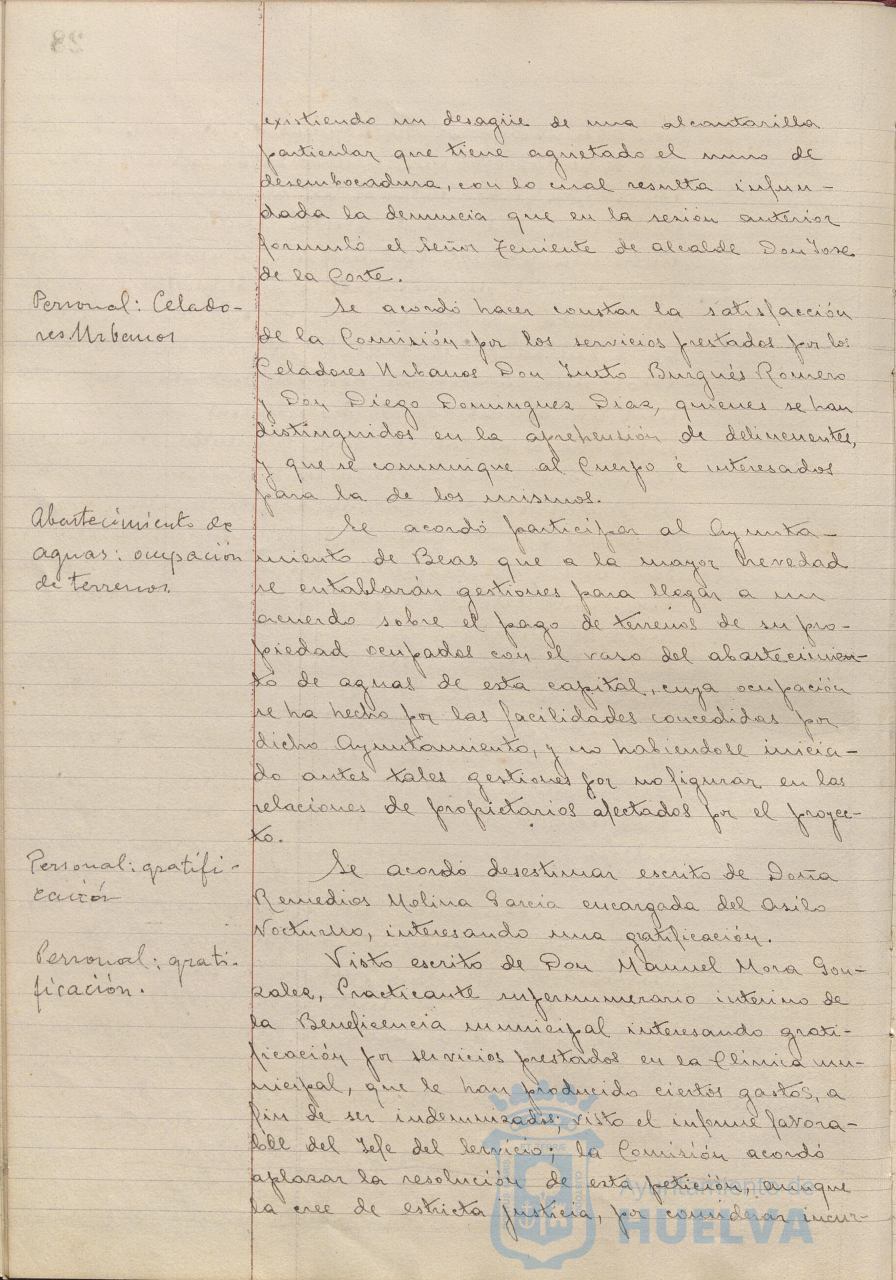 existiendo un desagüe de una alcantarilla
particular que tiene agrietado el muro de
desembocadura, con lo cual resulta infun-
dada la denuncia que en la sesión anterior
formuló el Señor Teniente de alcalde Don José
de la Corte.
Personal: Celado-
res Urbanos
Se acordó hacer constar la satisfacción
de la Comisión por los servicios prestados por los
Celadores Urbanos Don Justo Burgués Romero
y Don Diego Dominguez Diaz, quienes se han
distinguidos en la aprehensión de delincuentes,
y que se comunique al Cuerpo é interesados
para la de los mismos.
Abastecimiento de
aguas: ocupación
de terrenos.
Se acordó participar al Ayunta-
miento de Beas que a la mayor brevedad
se entablarán gestiones para llegar a un
acuerdo sobre el pago de terrenos de su pro-
piedad ocupados con el vaso del abastecimien-
to de aguas de esta capital, cuya ocupación
se ha hecho por las facilidades concedidas por
dicho Ayuntamiento, y no habiendose inicia-
do antes tales gestiones por no figurar en las
relaciones de propietarios afectados por el proyec-
to.
Personal: gratifi-
cación
Se acordó desestimar escrito de Doña
Remedios Molina Garcia encargada del Asilo
Nocturno, interesando una gratificación.
Personal: grati-
ficación.
Visto escrito de Don Manuel Mora Gon-
zalez, Practicante supernumerario interino de
la Beneficencia municipal interesando grati-
ficación por servicios prestados en la Clínica mu-
nicipal, que le han producido ciertos gastos, a
fin de ser indemnizado; visto el informe favora-
ble del Jefe del Servicio; la Comisión acordó
aplazar la resolución de esta petición, aunque
la cree de estricta justicia, por considerar incur-
Ayuntamiento de
HUELVA